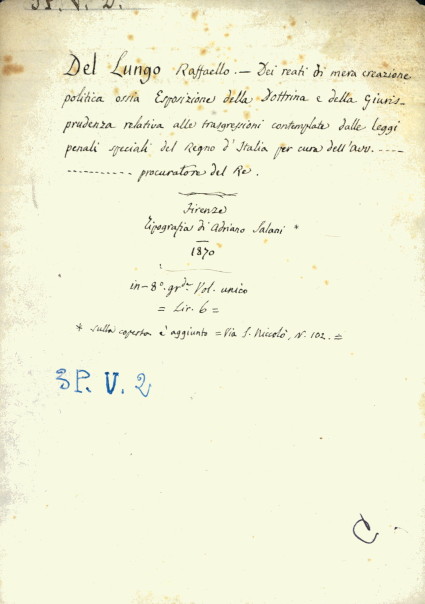 3P. V. 2.
Del Lungo Raffaello. — Dei reati di mera creazione
politica ossia Esposizione della Dottrina e della Giuris-
prudenza relativa alle trasgressioni contemplate dalle leggi
penali speciali del Regno d'Italia per cura dell'avv. -----
----------- procuratore del Re.
Firenze
Tipografia di Adriano Salani *
1870
in-8º. grde Vol. unico
= Lir. 6 =
* sulla coperta è aggiunto = Via S. Niccolò, N. 102. =
3P. V. 2
C